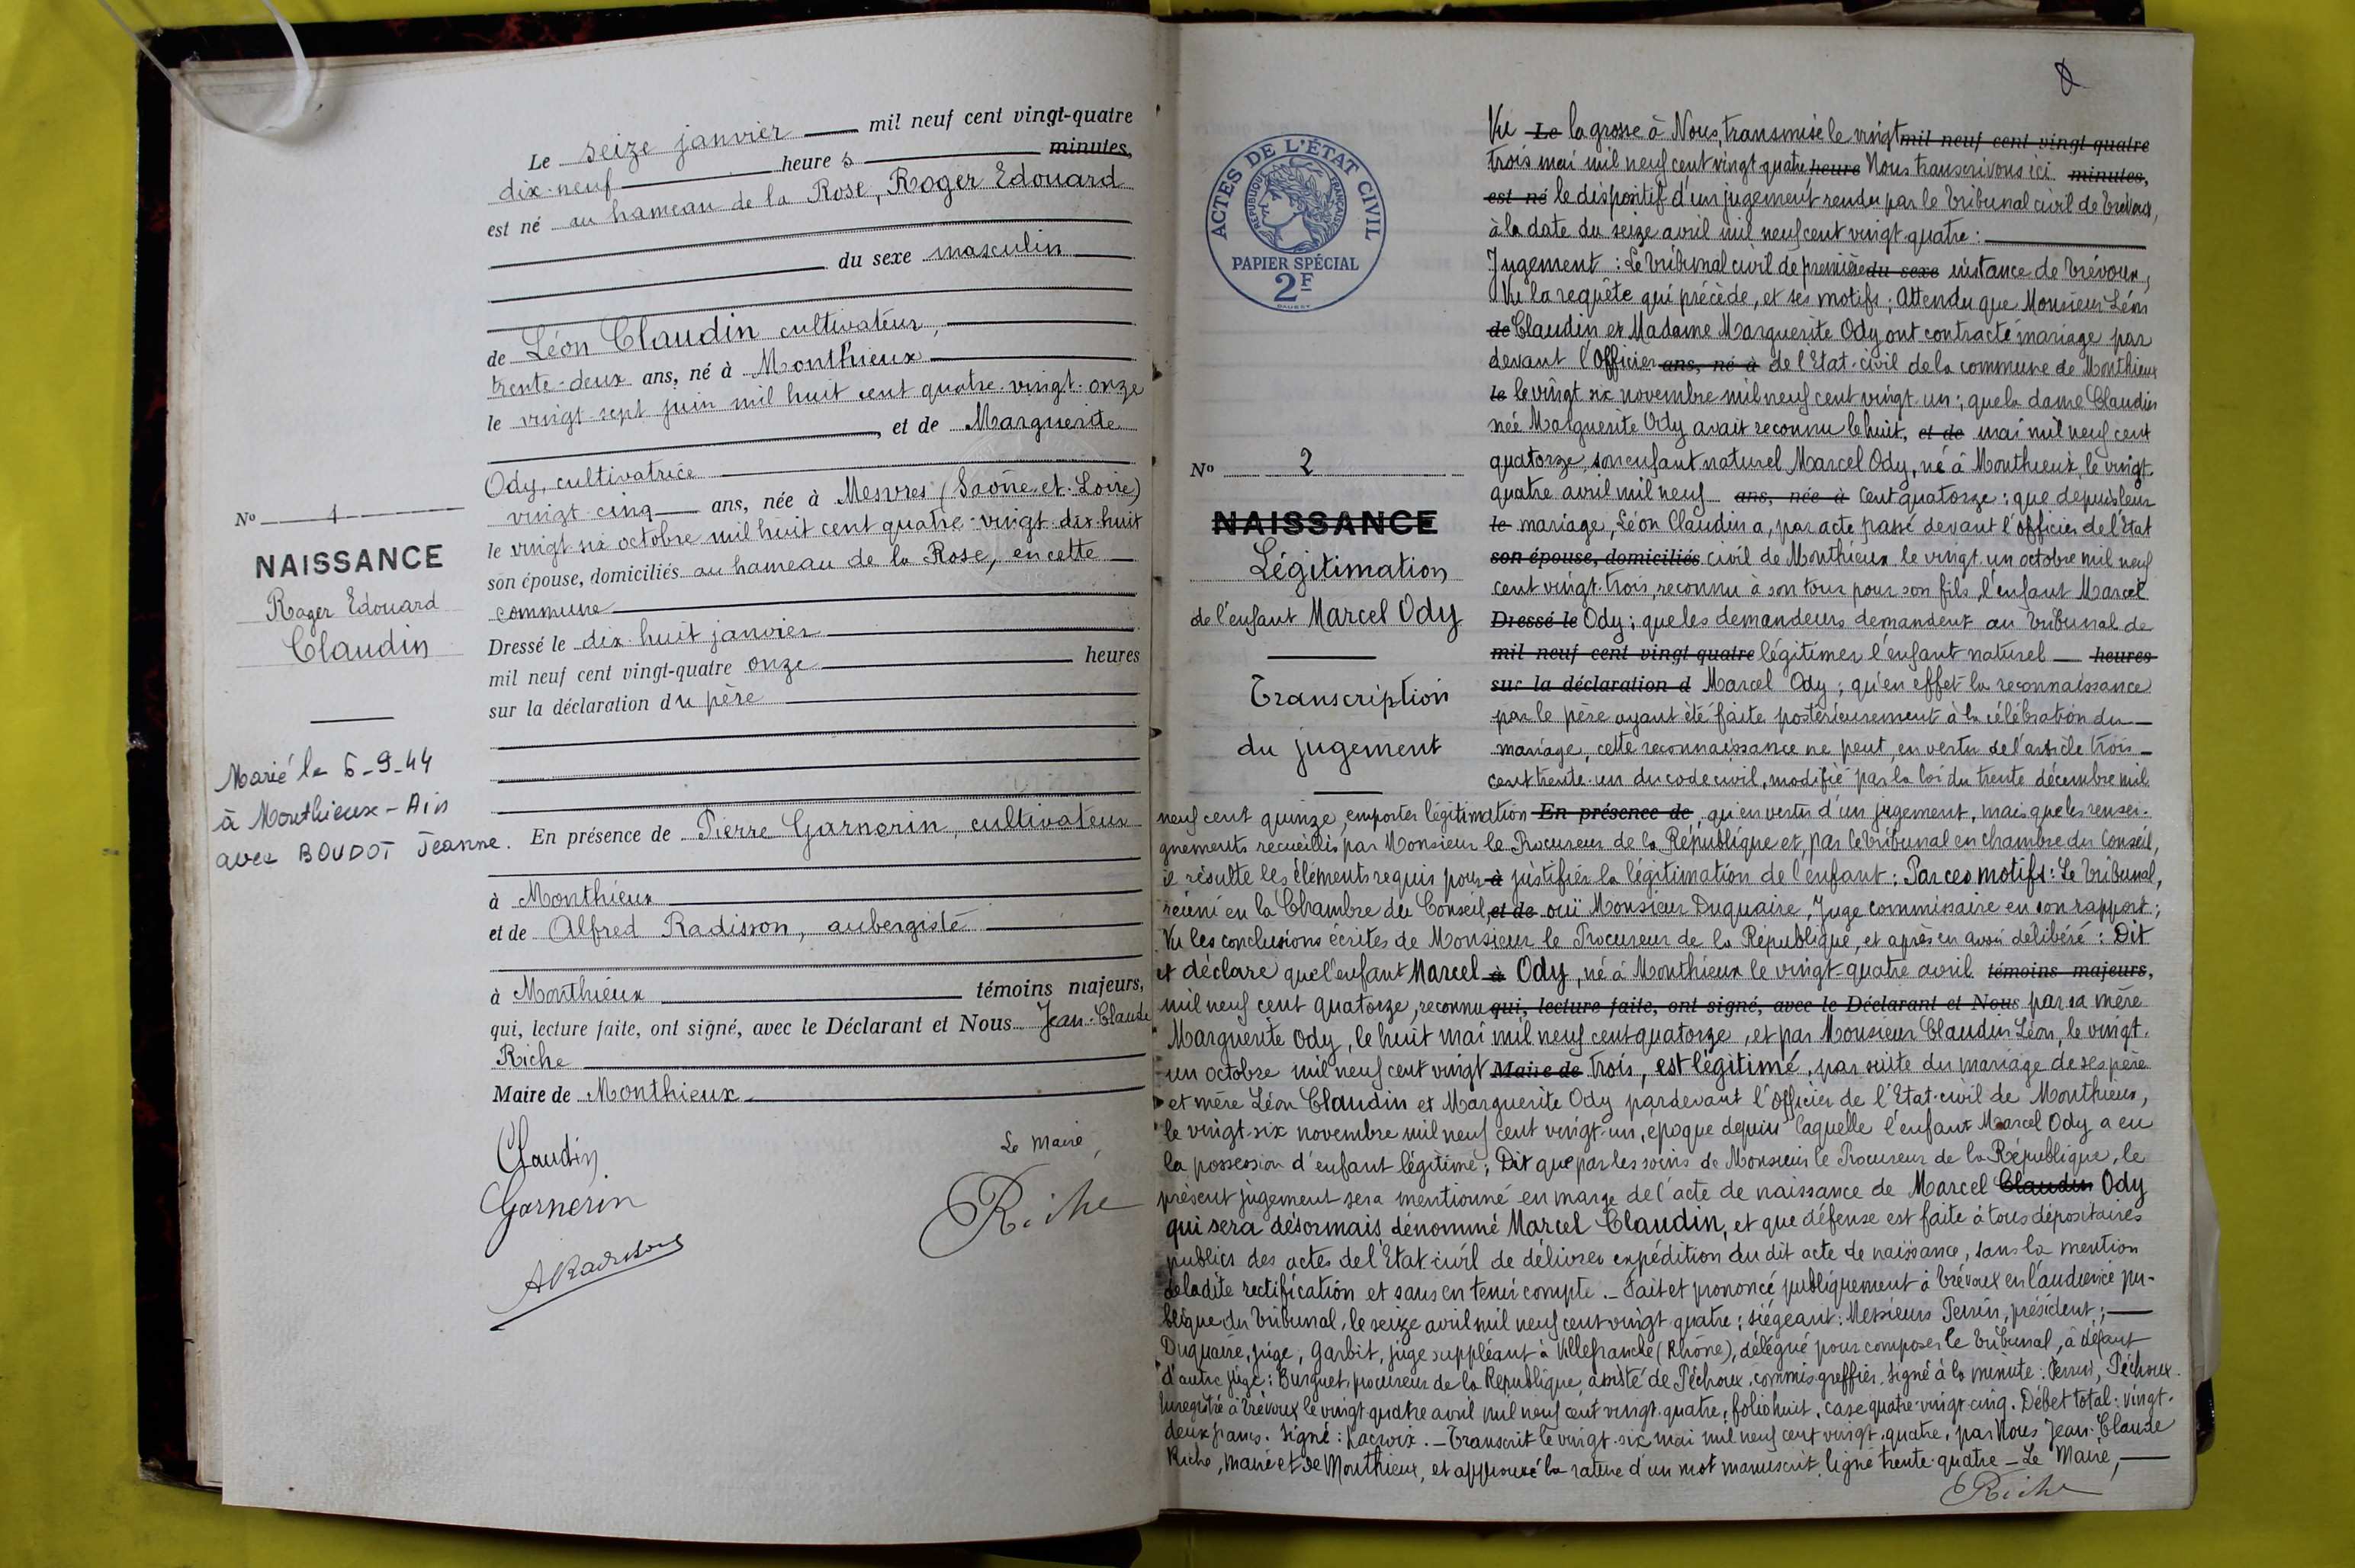 Le seize janvier mil neuf cent vingt-quatre
dix-neuf heures minutes,
est né au hameau de la Rose, Roger Edouard
du sexe masculin
de Léon Claudin cultivateur,
trente-deux ans, né à Monthieux
le vingt-sept juin mil huit cent quatre-vingt-onze
, et de Marguerite
Ody, cultivatrice
vingt-cinq ans, née à Mesvres (Saône-et-Loire)
le vingt six octobre mil huit cent quatre-vingt-dix-huit
son épouse, domiciliés au hameau de la Rose, en cette
commune
Dressé le dix-huit janvier
mil neuf cent vingt-quatre onze heures
sur la déclaration du père
En présence de Pierre Garnerin, cultivateur
à Monthieux
et de Alfred Radisson, aubergiste
à Monthieux témoins majeurs,
qui, lecture faite, ont signé, avec le Déclarant et Nous Jean-Claude
Riche
Maire de Monthieux
Claudin
Garnerin
ARadisson
Le Maire,
Riche
N° 1
NAISSANCE
Roger Edouard
Claudin
Marié le 5-9-44
à Monthieux - Ain
avec BOUDOT Jeanne.
ACTES DE L'ÉTAT CIVIL
RÉPUBLIQUE FRANÇAISE
PAPIER SPÉCIAL
2F
N° 2
NAISSANCE
Légitimation
de l'enfant Marcel Ody
Transcription
du jugement
Vu Le la grosse à Nous, transmise le vingt mil neuf cent vingt-quatre
trois mai mil neuf cent vingt quatre heure Nous transcrivons ici minutes,
est né le dispositif d'un jugement rendu par le Tribunal civil de Trévoux,
à la date du seize avril mil neuf cent vingt-quatre :
Jugement : Le Tribunal civil de première du sexe instance de Trévoux,
Vu la requête qui précède, et ses motifs ; Attendu que Monsieur Léon
de Claudin et Madame Marguerite Ody ont contracté mariage par
devant l'Officier ans, né à de l'Etat-civil de la commune de Monthieux
le le vingt six novembre mil neuf cent vingt-un ; que la dame Claudin
née Marguerite Ody avait reconnu le huit, et de mai mil neuf cent
quatorze, son enfant naturel Marcel Ody, né à Monthieux, le vingt-
quatre avril mil neuf ans, née à cent quatorze ; que depuis leur
le mariage, Léon Claudin a, par acte passé devant l'officier de l'Etat
son épouse, domiciliés civil de Monthieux le vingt-un octobre mil neuf
cent vingt-trois, reconnu à son tour pour son fils, l'enfant Marcel
Dressé le Ody ; que les demandeurs demandent au Tribunal de
mil neuf cent vingt-quatre légitimer l'enfant naturel heures
sur la déclaration d Marcel Ody ; qu'en effet la reconnaissance
par le père ayant été faite postérieurement à la célébration du
mariage, cette reconnaissance ne peut, en vertu de l'article trois
cent trente-un du code civil, modifié par la loi du trente décembre mil
neuf cent quinze, emporter légitimation En présence de, qu'en vertu d'un jugement, mais que les rensei-
gnements recueillis par Monsieur le Procureur de la République et, par le tribunal en chambre du Conseil,
il résulte les éléments requis pour à justifier la légitimation de l'enfant ; Par ces motifs : Le Tribunal,
réuni en la Chambre du Conseil, et de ouï Monsieur Duquaire, Juge commissaire en son rapport ;
Vu les conclusions écrites de Monsieur le Procureur de la République, et après en avoir délibéré : Dit
et déclare que l'enfant Marcel à Ody, né à Monthieux le vingt-quatre avril témoins majeurs,
mil neuf cent quatorze, reconnu qui, lecture faite, ont signé, avec le Déclarant et Nous par sa mère
Marguerite Ody, le huit mai mil neuf cent quatorze, et par Monsieur Claudin Léon, le vingt-
un octobre mil neuf cent vingt Maire de trois, est légitimé, par suite du mariage de ses père
et mère Léon Claudin et Marguerite Ody par devant l'Officier de l'Etat-civil de Monthieux,
le vingt-six novembre mil neuf cent vingt-un, époque depuis laquelle l'enfant Marcel Ody a eu
la possession d'enfant légitime ; Dit que par les soins de Monsieur le Procureur de la République, le
présent jugement sera mentionné en marge de l'acte de naissance de Marcel Claudin Ody
qui sera désormais dénommé Marcel Claudin, et que défense est faite à tous dépositaires
publics des actes de l'Etat civil de délivrer expédition du dit acte de naissance, sans la mention
de ladite rectification et sans en tenir compte. - Fait et prononcé publiquement à Trévoux en l'audience pu-
blique du Tribunal, le seize avril mil neuf cent vingt-quatre ; siégeant : Messieurs Perrin, président ;
Duquaire, juge, Garbit, juge suppléant à Villefranche (Rhône), délégué pour composer le Tribunal, à défaut
d'autre juge : Burguet, procureur de la République, assisté de Péchoux, commis greffier. signé à la minute : Perrin, Péchoux.
Enregistré à Trévoux le vingt-quatre avril mil neuf cent vingt-quatre, folio huit, case quatre-vingt-cinq. Débet total : vingt-
deux francs. Signé : Lacroix. - Transcrit le vingt-six mai mil neuf cent vingt-quatre, par Nous Jean-Claude
Riche, maire de Monthieux, et approuvé la rature d'un mot manuscrit, ligne trente-quatre - Le Maire,
Riche